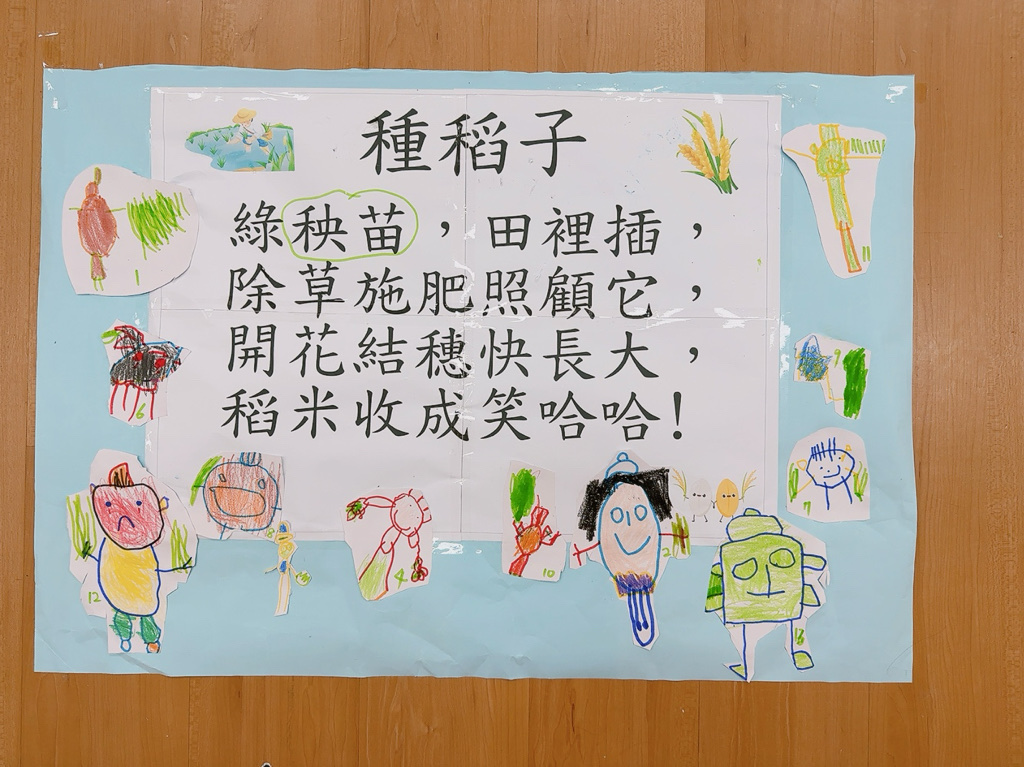 種稻子
綠秧苗，田裡插，
除草施肥照顧它，
開花結穗快長大，
稻米收成笑哈哈！
1
11
6
9
7
12
4
10
2